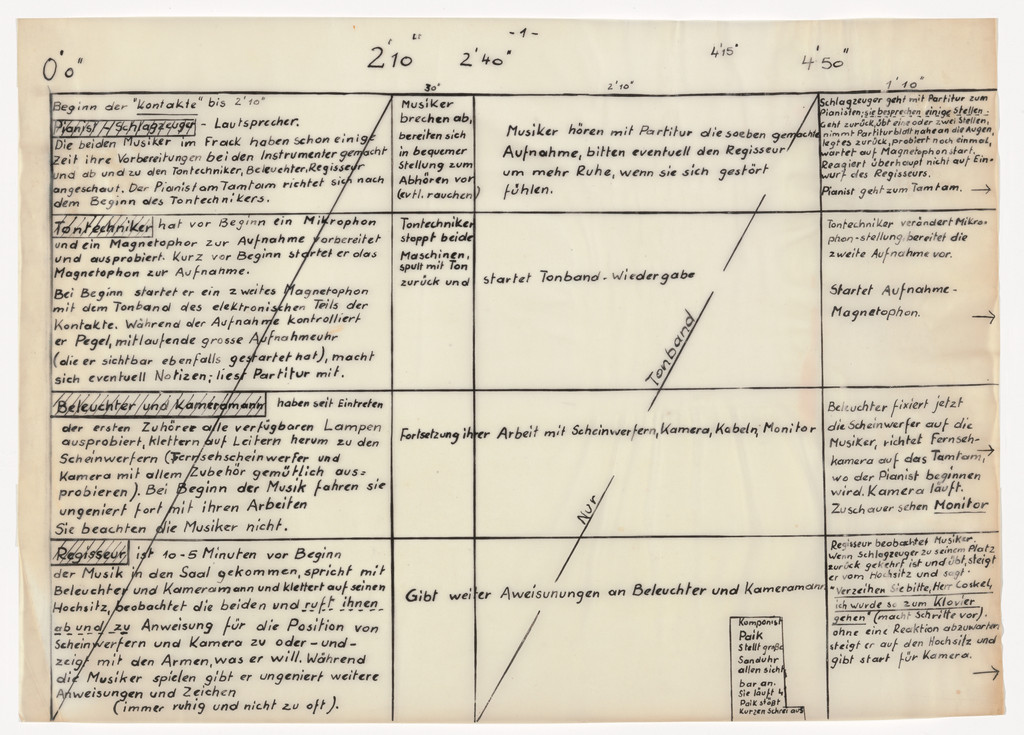 -1-
0'0"
2'10
2'40"
4'15"
4'50"
30"
2'10"
1'10"
Beginn der "Kontakte" bis 2'10"
Pianist + Schlagzeuger - Lautsprecher.
Die beiden Musiker im Frack haben schon einige
Zeit ihre Vorbereitungen bei den Instrumenten gemacht
und ab und zu den Tontechniker, Beleuchter, Regisseur
angeschaut. Der Pianist am Tamtam richtet sich nach
dem Beginn des Tontechnikers.
Musiker
brechen ab,
bereiten sich
in bequemer
Stellung zum
Abhören vor
(evtl. rauchen)
Musiker hören mit Partitur die soeben gemachte
Aufnahme, bitten eventuell den Regisseur
um mehr Ruhe, wenn sie sich gestört
fühlen.
Schlagzeuger geht mit Partitur zum
Pianisten; sie besprechen einige Stellen-
Geht zurück, übt eine oder zwei Stellen,
nimmt Partiturblatt nahe an die Augen,
legt es zurück, probiert noch einmal,
wartet auf Magnetophonstart.
Reagiert überhaupt nicht auf Ein-
wurf des Regisseurs.
Pianist geht zum Tamtam. →
Tontechniker hat vor Beginn ein Mikrophon
und ein Magnetophor zur Aufnahme vorbereitet
und ausprobiert. Kurz vor Beginn startet er das
Magnetophon zur Aufnahme.
Bei Beginn startet er ein zweites Magnetophon
mit dem Tonband des elektronischen Teils der
Kontakte. Während der Aufnahme kontrolliert
er Pegel, mitlaufende grosse Aufnahmeuhr
(die er sichtbar ebenfalls gestartet hat), macht
sich eventuell Notizen; liest Partitur mit.
Tontechniker
stoppt beide
Maschinen,
spult mit Ton
zurück und
startet Tonband-Wiedergabe
Tontechniker verändert Mikro-
phon-stellung, bereitet die
zweite Aufnahme vor.
Startet Aufnahme-
Magnetophon. →
Nur Tonband
Beleuchter und Kameramann haben seit Eintreten
der ersten Zuhörer alle verfügbaren Lampen
ausprobiert, klettern auf Leitern herum zu den
Scheinwerfern (Fernsehscheinwerfer und
Kamera mit allem Zubehör gemütlich aus=
probieren). Bei Beginn der Musik fahren sie
ungeniert fort mit ihren Arbeiten
Sie beachten die Musiker nicht.
Fortsetzung ihrer Arbeit mit Scheinwerfern, Kamera, Kabeln, Monitor
Beleuchter fixiert jetzt
die Scheinwerfer auf die
Musiker, richtet Fernseh-
kamera auf das Tamtam, →
wo der Pianist beginnen
wird. Kamera läuft.
Zuschauer sehen Monitor
Regisseur ist 10-5 Minuten vor Beginn
der Musik in den Saal gekommen, spricht mit
Beleuchter und Kameramann und klettert auf seinen
Hochsitz, beobachtet die beiden und ruft ihnen
ab und zu Anweisung für die Position von
Scheinwerfern und Kamera zu oder-und-
zeigt mit den Armen, was er will. Während
die Musiker spielen gibt er ungeniert weitere
Anweisungen und Zeichen
(immer ruhig und nicht zu oft).
Gibt weiter Aweisunungen an Beleuchter und Kameramann.
Komponist
Paik
Stellt große
Sanduhr
allen sicht
bar an.
Sie läuft 4
Paik stößt
Kurzen Schrei aus
Regisseur beobachtet Musiker.
Wenn Schlagzeuger zu seinem Platz
zurück gekehrt ist und übt, steigt
er vom Hochsitz und sagt-
"Verzeihen Sie bitte, Herr Caskel,
ich würde so zum Klavier
gehen" (macht Schritte vor).
ohne eine Reaktion abzuwarten
steigt er auf den Hochsitz und
gibt start für Kamera.
→